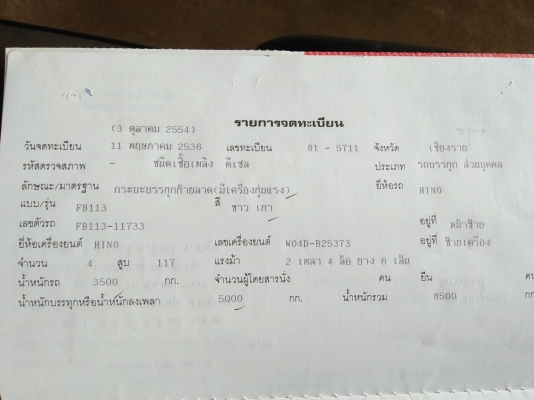 รายการจดทะเบียน
(3 ตุลาคม 2554)
วันจดทะเบียน 11 พฤษภาคม 2536 เลขทะเบียน 81 - 5711 จังหวัด เชียงราย
รหัสตรวจสภาพ - ชนิดเชื้อเพลิง ดีเซล ประเภท รถบรรทุก ส่วนบุคคล
ลักษณะ/มาตรฐาน กระบะบรรทุกท้ายลาด(มีเครื่องทุ่นแรง) ยี่ห้อรถ HINO
แบบ/รุ่น FB113 สี ขาว เทา
เลขตัวรถ FB113-11733 อยู่ที่ หน้าซ้าย
ยี่ห้อเครื่องยนต์ HINO เลขเครื่องยนต์ W04D-B25373 อยู่ที่ ซ้ายเครื่อง
จำนวน 4 สูบ 117 แรงม้า 2 เพลา 4 ล้อ ยาง 6 เส้น
น้ำหนักรถ 3500 กก. จำนวนผู้โดยสารนั่ง คน ยืน คน
น้ำหนักบรรทุกหรือน้ำหนักลงเพลา 5000 กก. น้ำหนักรวม 8500 กก